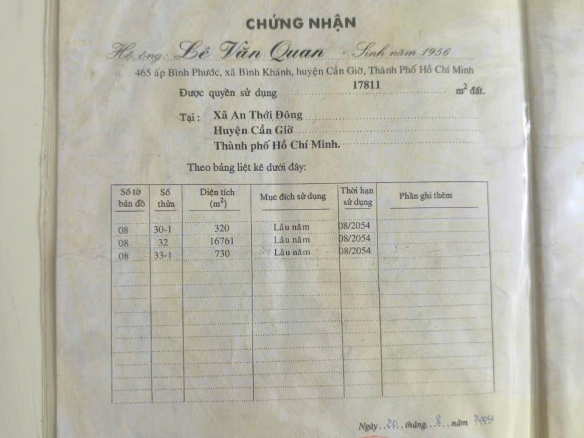 CHỨNG NHẬN
Hộ ông: Lê Văn Quan - Sinh năm 1956
465 ấp Bình Phước, xã Bình Khánh, huyện Cần Giờ, Thành Phố Hồ Chí Minh
Được quyền sử dụng 17811 m² đất.
Tại: Xã An Thới Đông
Huyện Cần Giờ
Thành phố Hồ Chí Minh.
Theo bảng liệt kê dưới đây:
Số tờ bản đồ Số thửa Diện tích (m²) Mục đích sử dụng Thời hạn sử dụng Phần ghi thêm
08 30-1 320 Lâu năm 08/2054
08 32 16761 Lâu năm 08/2054
08 33-1 730 Lâu năm 08/2054
Ngày 20 tháng 8 năm